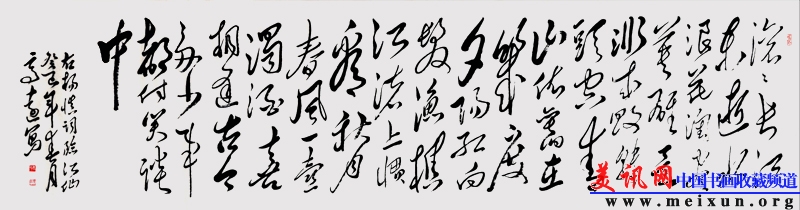 滚滚长江
东逝水
浪花淘尽
英雄是
非成败转
头空青
山依旧在
几度
夕阳红白
发渔樵
江渚上惯
看秋月
春风一壶
浊酒喜
相逢古今
多少事
都付笑谈
中
右杨慎词临江仙
癸巳年
美讯网 中国书画收藏频道
www.meixun.org